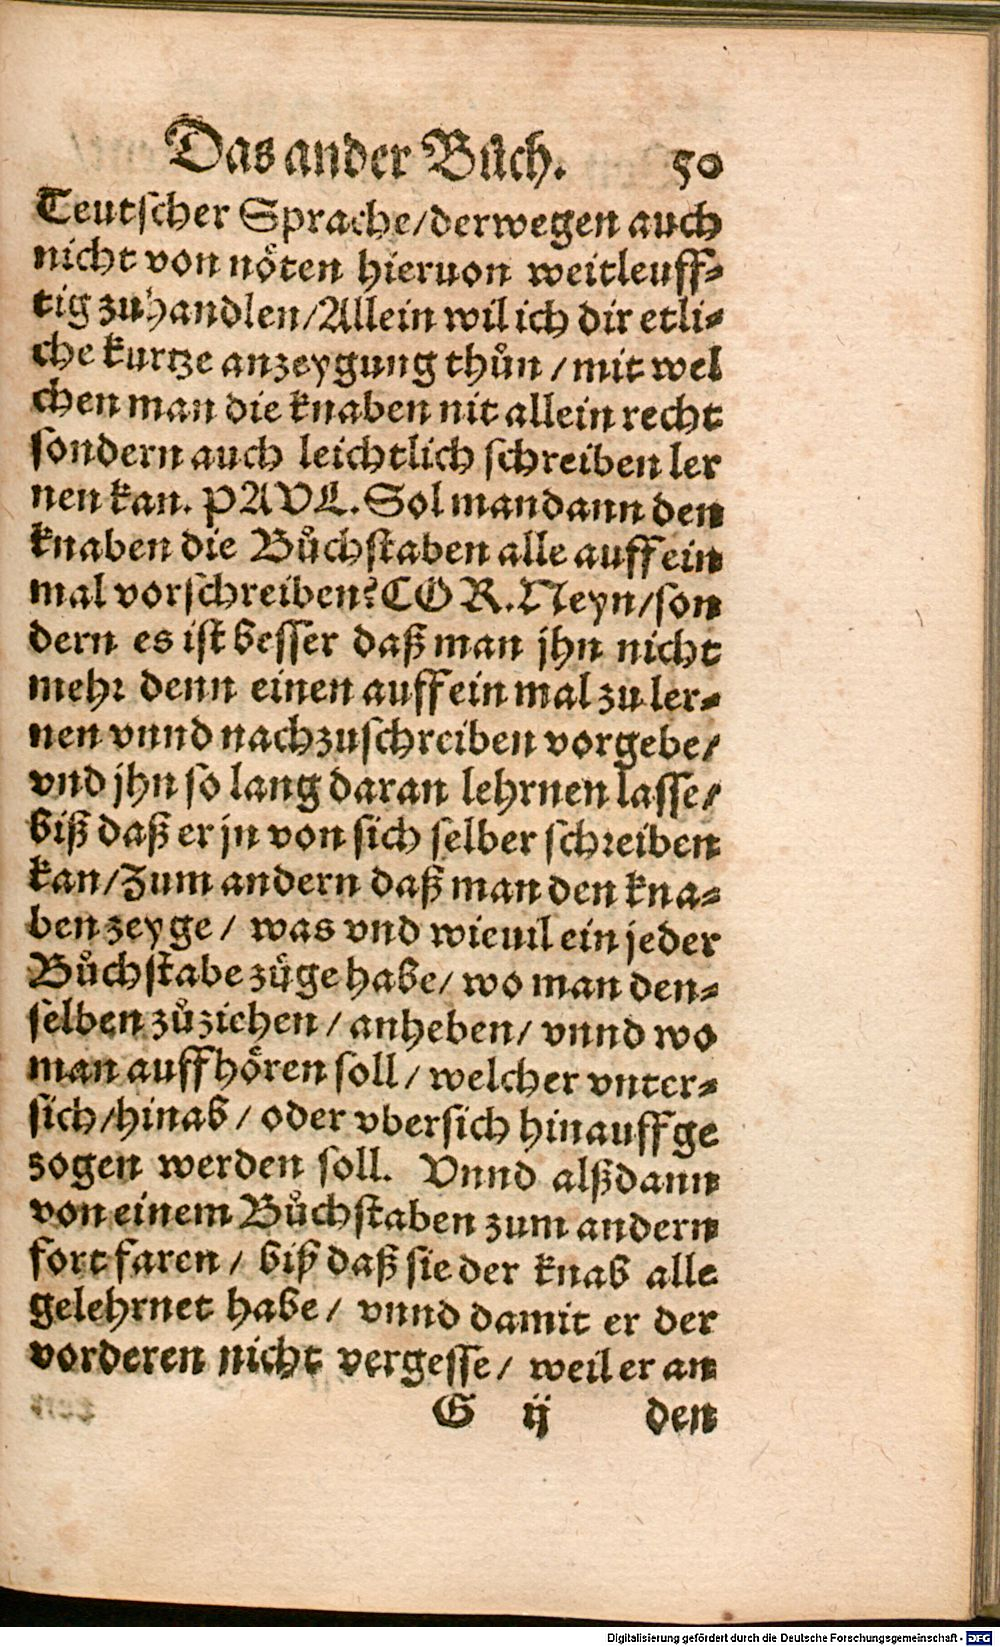 Das ander Bůch. 50
Teutscher Sprache/derwegen auch
nicht von nöten hieruon weitleuff-
tig zuhandlen/Allein wil ich dir etli-
che kurtze anzeygung thůn / mit wel
chen man die knaben nit allein recht
sondern auch leichtlich schreiben ler
nen kan. PAVL. Sol man dann den
knaben die Bůchstaben alle auff ein
mal vorschreiben? COR. Neyn/son
dern es ist besser daß man jhn nicht
mehr denn einen auff ein mal zu ler-
nen vnnd nachzuschreiben vorgebe/
vnd jhn so lang daran lehrnen lasse/
biß daß er jn von sich selber schreiben
kan/Zum andern daß man den kna-
ben zeyge / was vnd wieuil ein jeder
Bůchstabe züge habe/ wo man den-
selben zůziehen / anheben/ vnnd wo
man auffhören soll / welcher vnter-
sich/hinab / oder vbersich hinauff ge
zogen werden soll. Vnnd alßdann
von einem Bůchstaben zum andern
fort faren / biß daß sie der knab alle
gelehrnet habe / vnnd damit er der
vorderen nicht vergesse / weil er an
G ij den
Digitalisierung gefördert durch die Deutsche Forschungsgemeinschaft - DFG